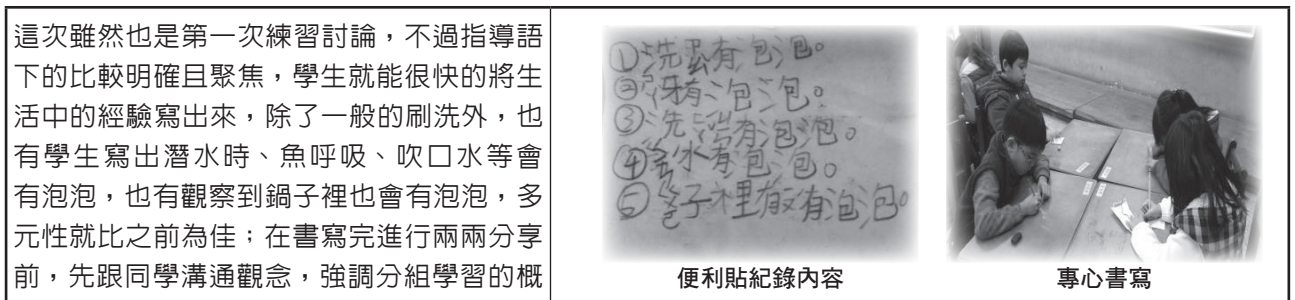 這次雖然也是第一次練習討論，不過指導語
下的比較明確且聚焦，學生就能很快的將生
活中的經驗寫出來，除了一般的刷洗外，也
有學生寫出潛水時、魚呼吸、吹口水等會
有泡泡，也有觀察到鍋子裡也會有泡泡，多
元性就比之前為佳；在書寫完進行兩兩分享
前，先跟同學溝通觀念，強調分組學習的概
①洗 有泡泡。
② 牙有泡泡。
③洗 有泡泡。
④ 水有包包。
⑤ 子裡 有泡泡
便利貼紀錄內容
專心書寫